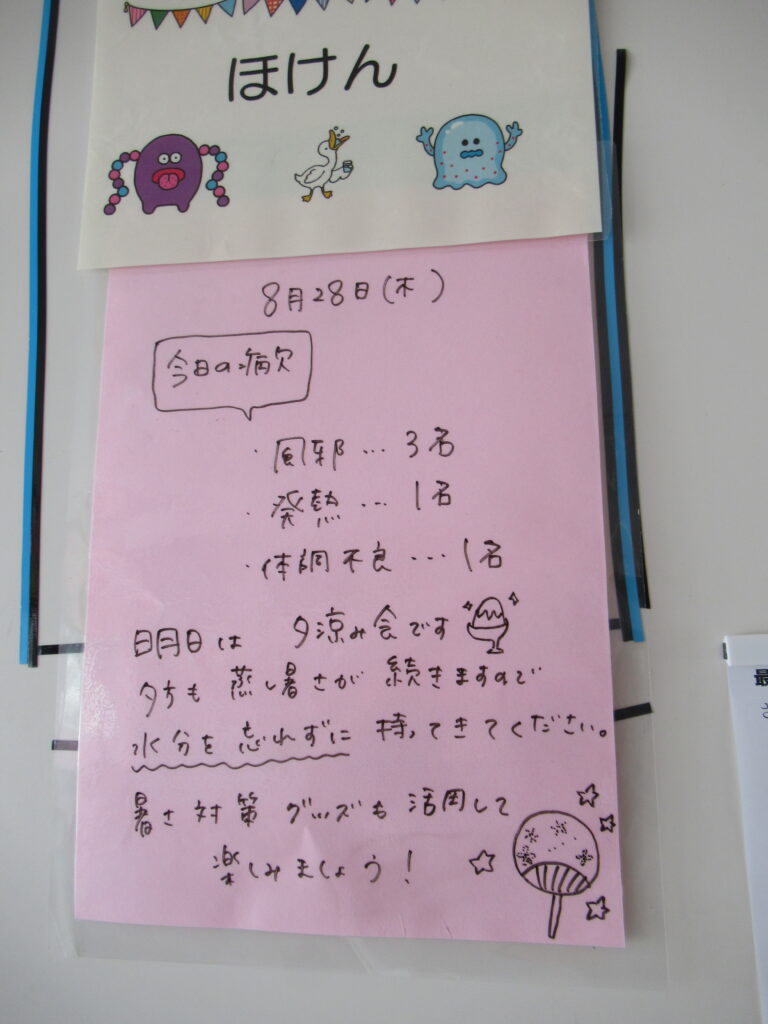 ほけん
8月28日(木)
今日の病欠
・風邪…3名
・発熱…1名
・体調不良…1名
明日は 夕涼み会です
夕方も 蒸し暑さが 続きますので
水分を 忘れずに 持ってきてください。
暑さ対策 グッズも 活用して
楽しみましょう!
最